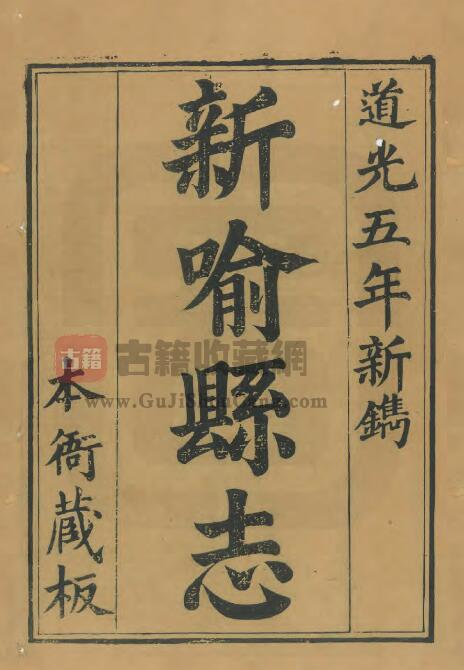 道光五年新鐫
新喻縣志
本衙藏板
古籍
古籍收藏網
www.GuJiShouCang.com